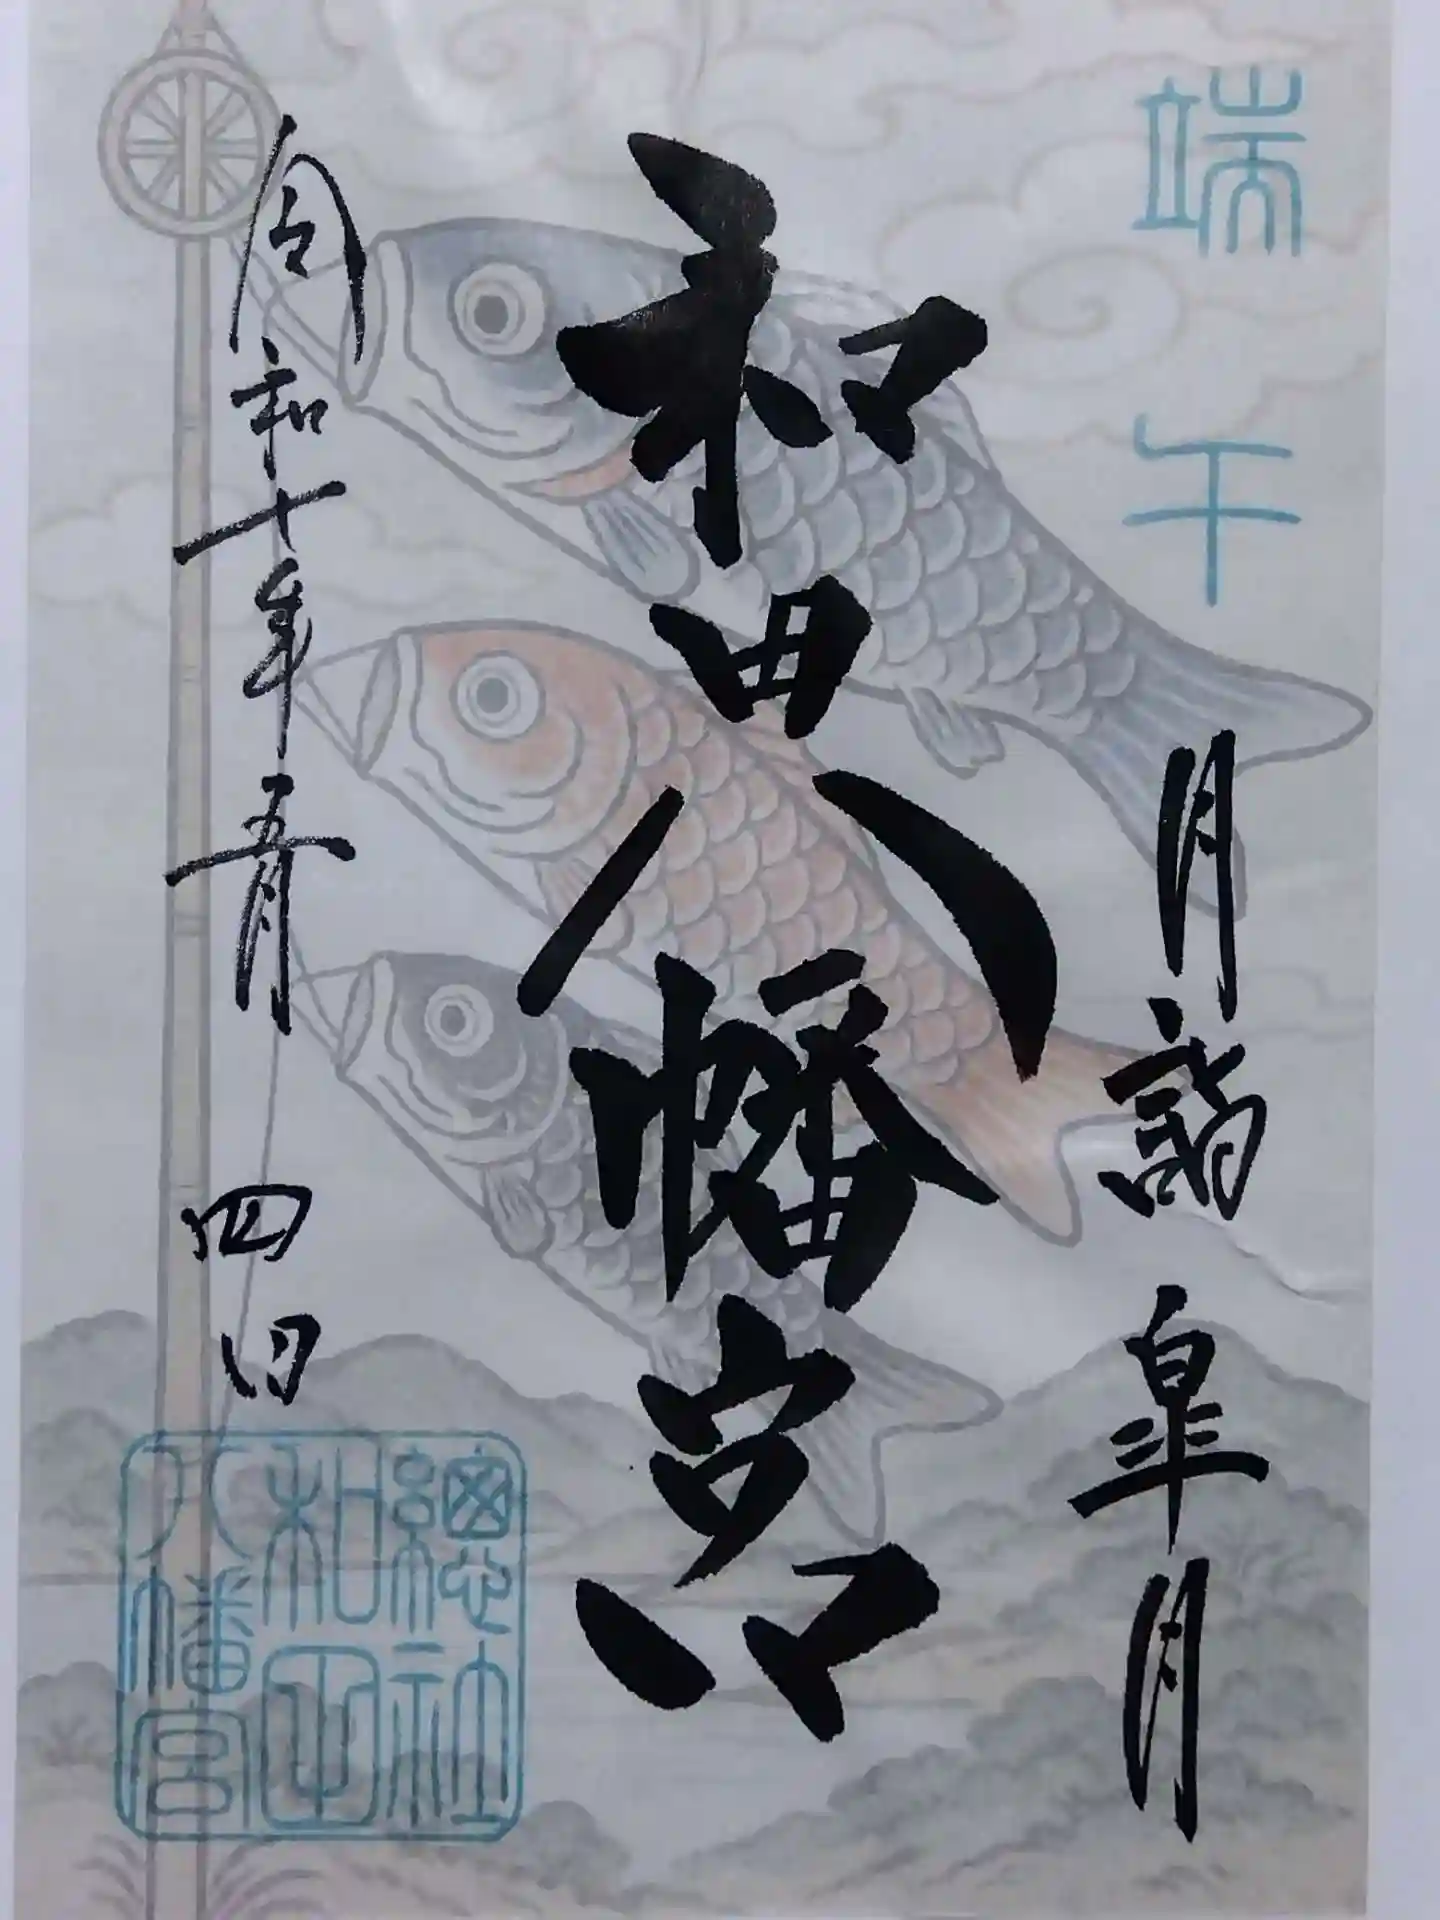 端午
月詣 皐月
和田八幡宮
令和七年五月 四日
總社
和田
八幡宮